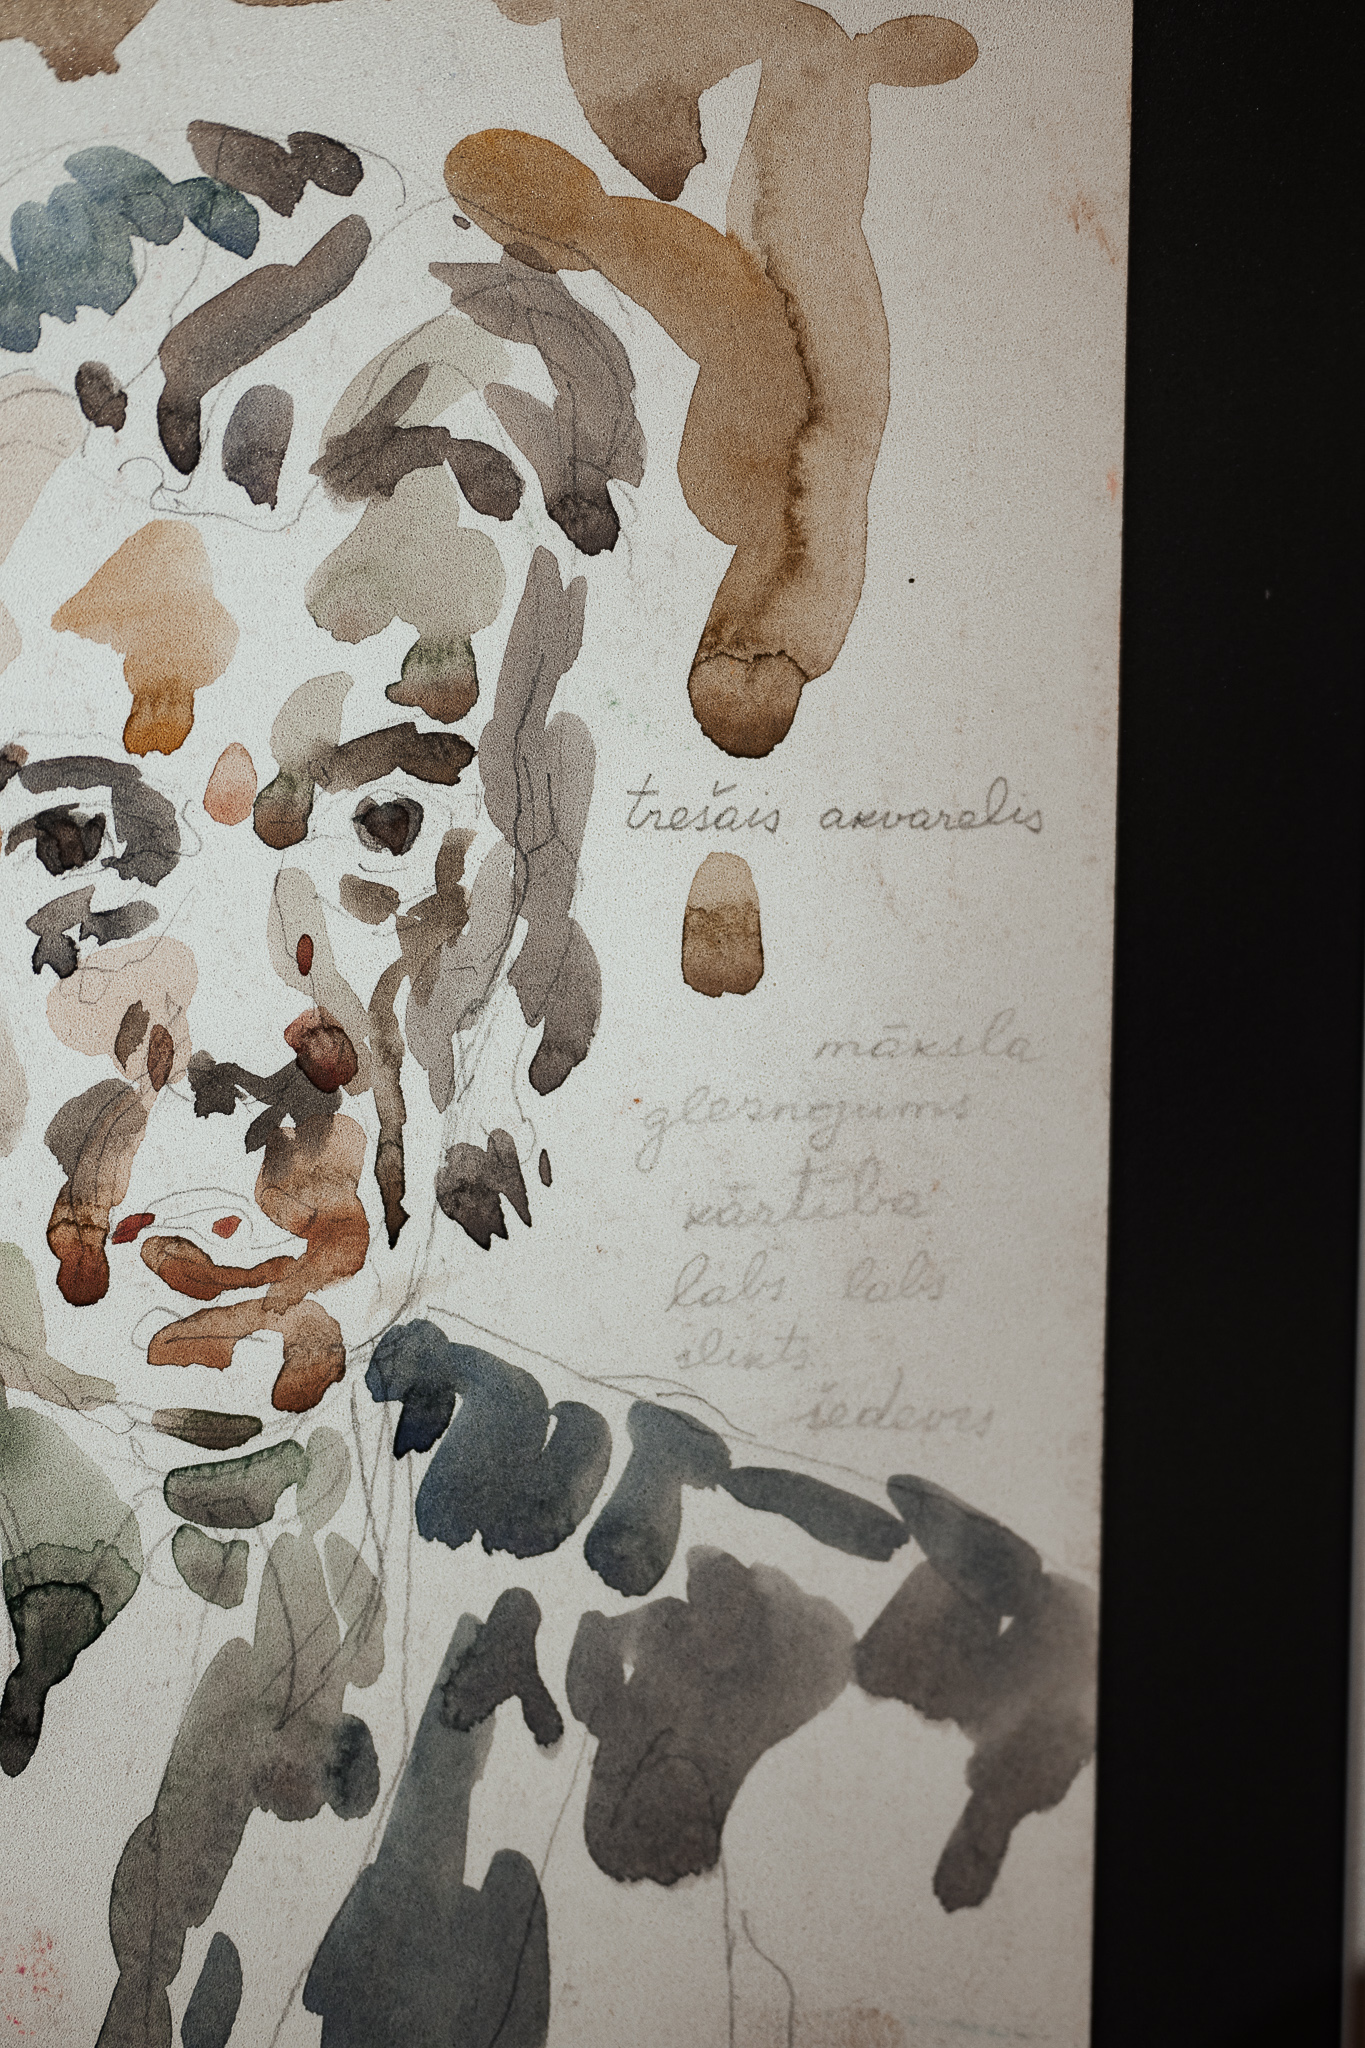 trešais akvarelis
māksla
gleznojums
kārtība
labs labs
slikts